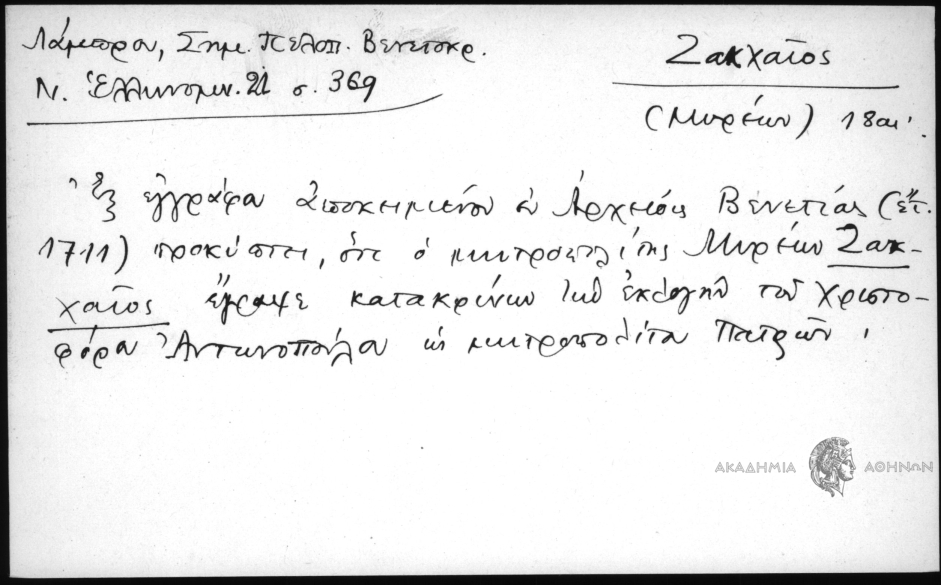 Λάμπρου, Σημ. Πελοπ. Βενετοκρ.
Ν. Ἑλληνομν. 21 σ. 369
Ζακχαῖος
(Μυρέων) 18 αι.
Ἐξ ἐγγράφου ἀποκειμένου ἐν Ἀρχείοις Βενετίας (ἔτ.
1711) προκύπτει, ὅτι ὁ μητροπολίτης Μυρέων Ζακ-
χαῖος ἔγραψε κατακρίνων τὴν ἐκλογὴν τοῦ Χριστο-
φόρου Ἀντωνοπούλου ὡς μητροπολίτου Πατρῶν.
ΑΚΑΔΗΜΙΑ ΑΘΗΝΩΝ